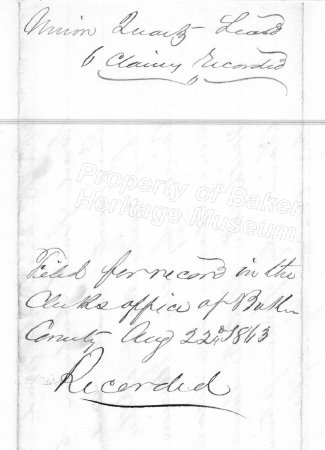 Union Quartz Lead
6 Claims Recorded
Property of Baker
Heritage Museum
Filed for record in the
Clerks office of Baker
County Aug 22d 1863
Recorded